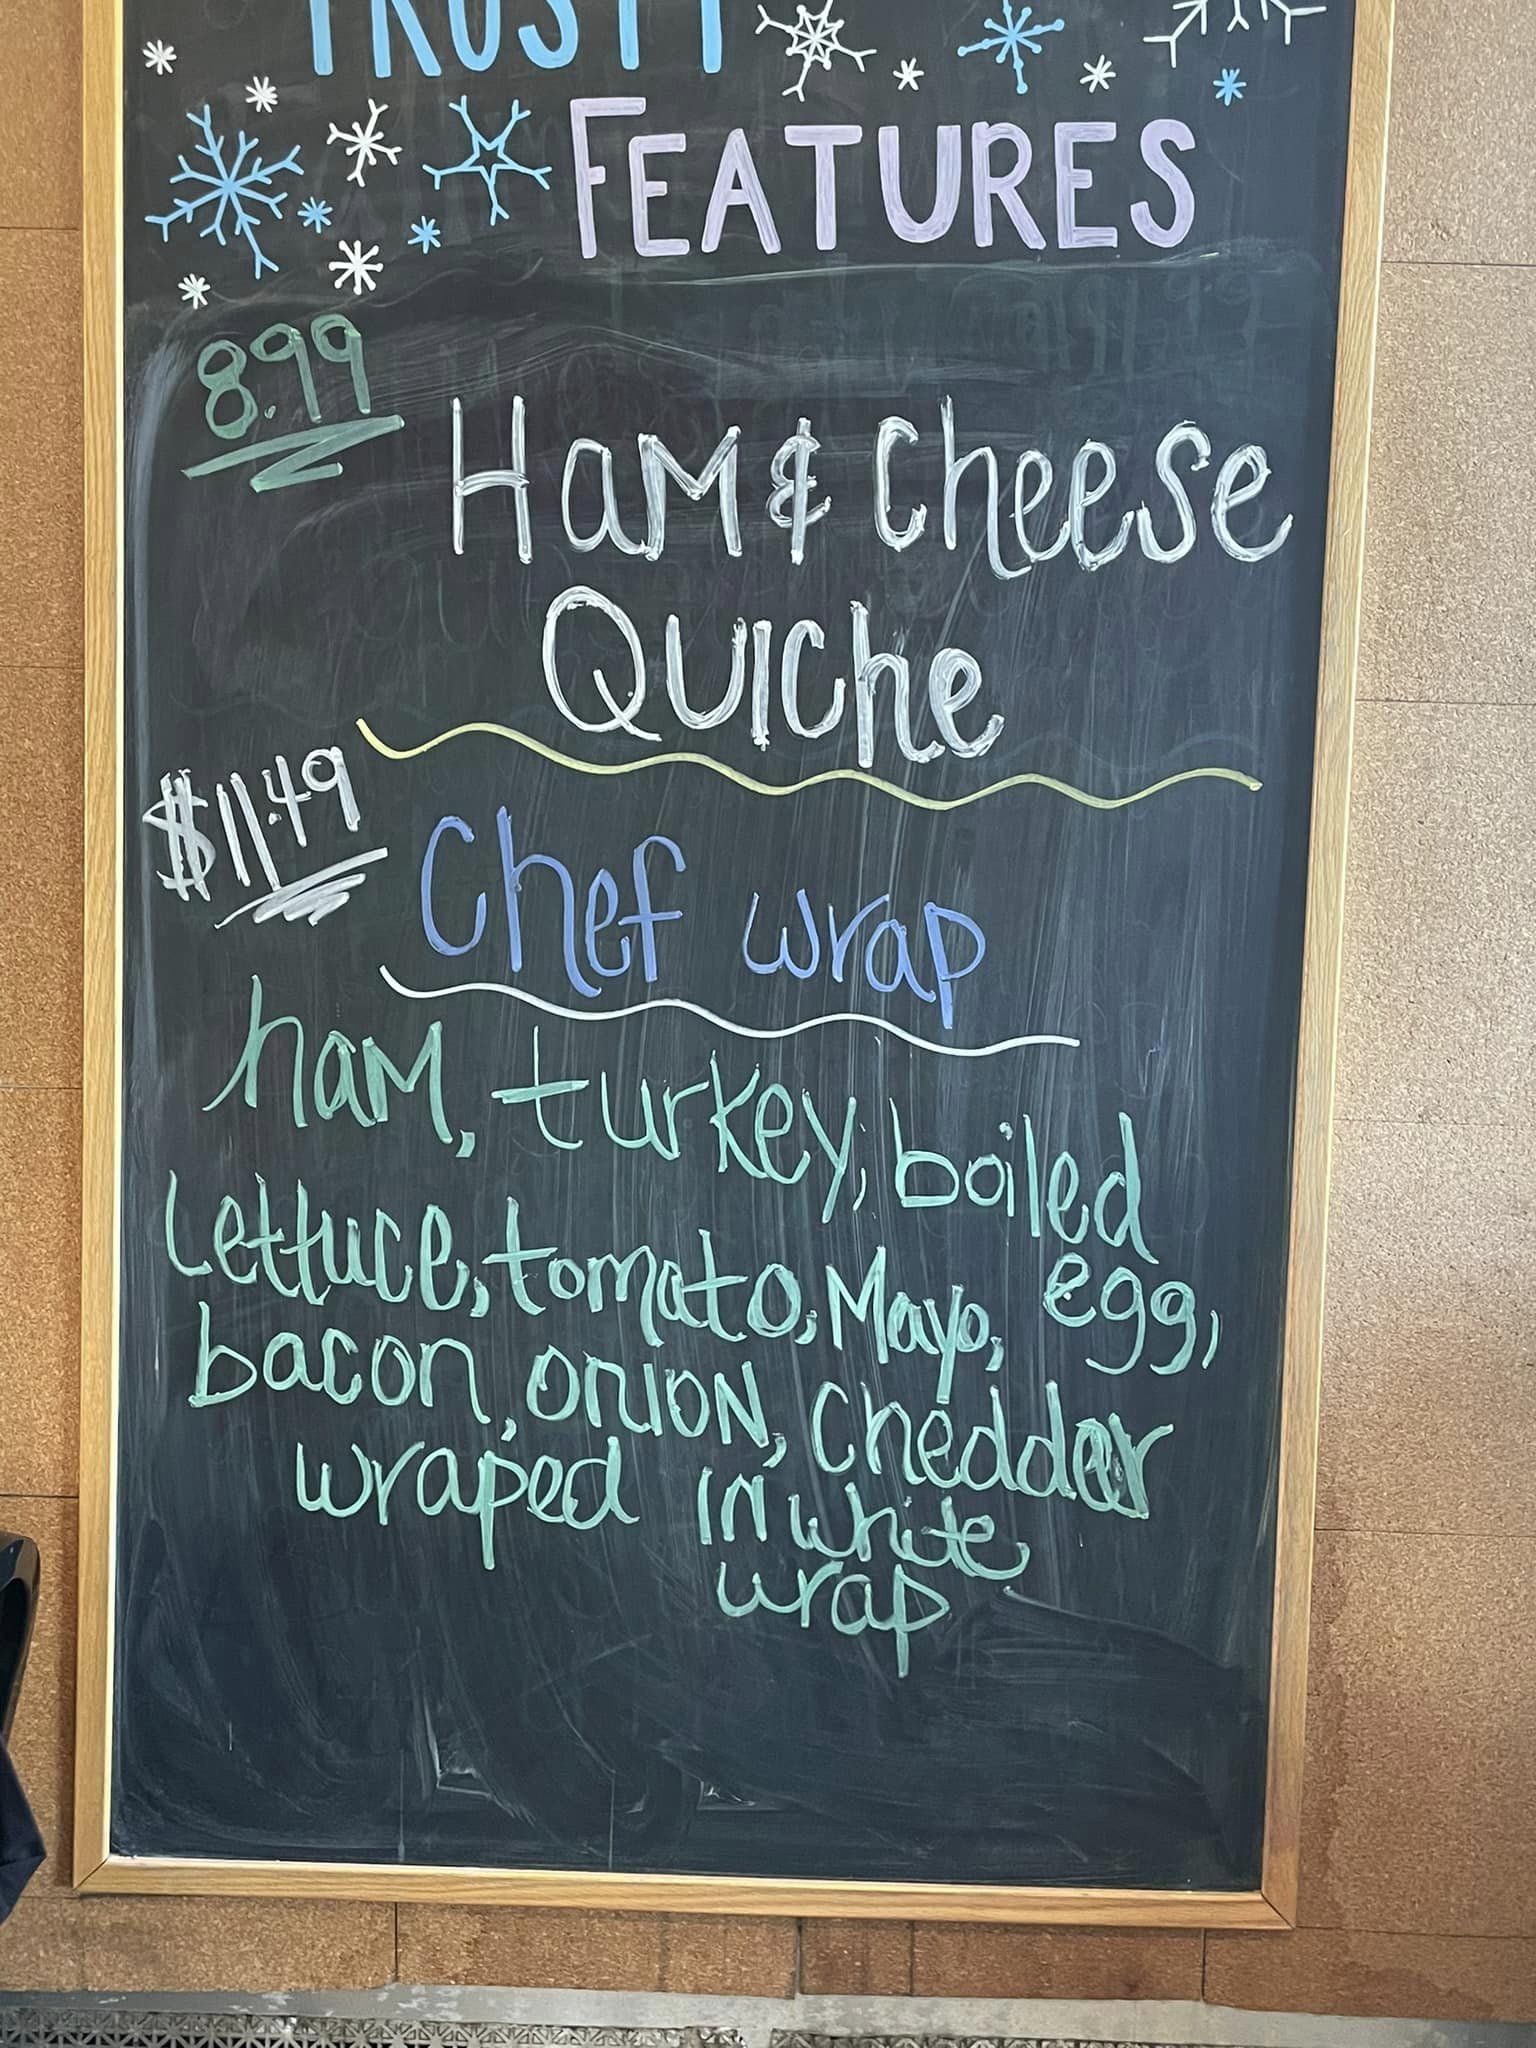 FROSTY
FEATURES
8.99
Ham & Cheese
Quiche
$11.49
Chef wrap
ham, turkey, boiled
egg,
Lettuce, tomato, Mayo,
bacon, onion, Cheddar
wraped in white
wrap